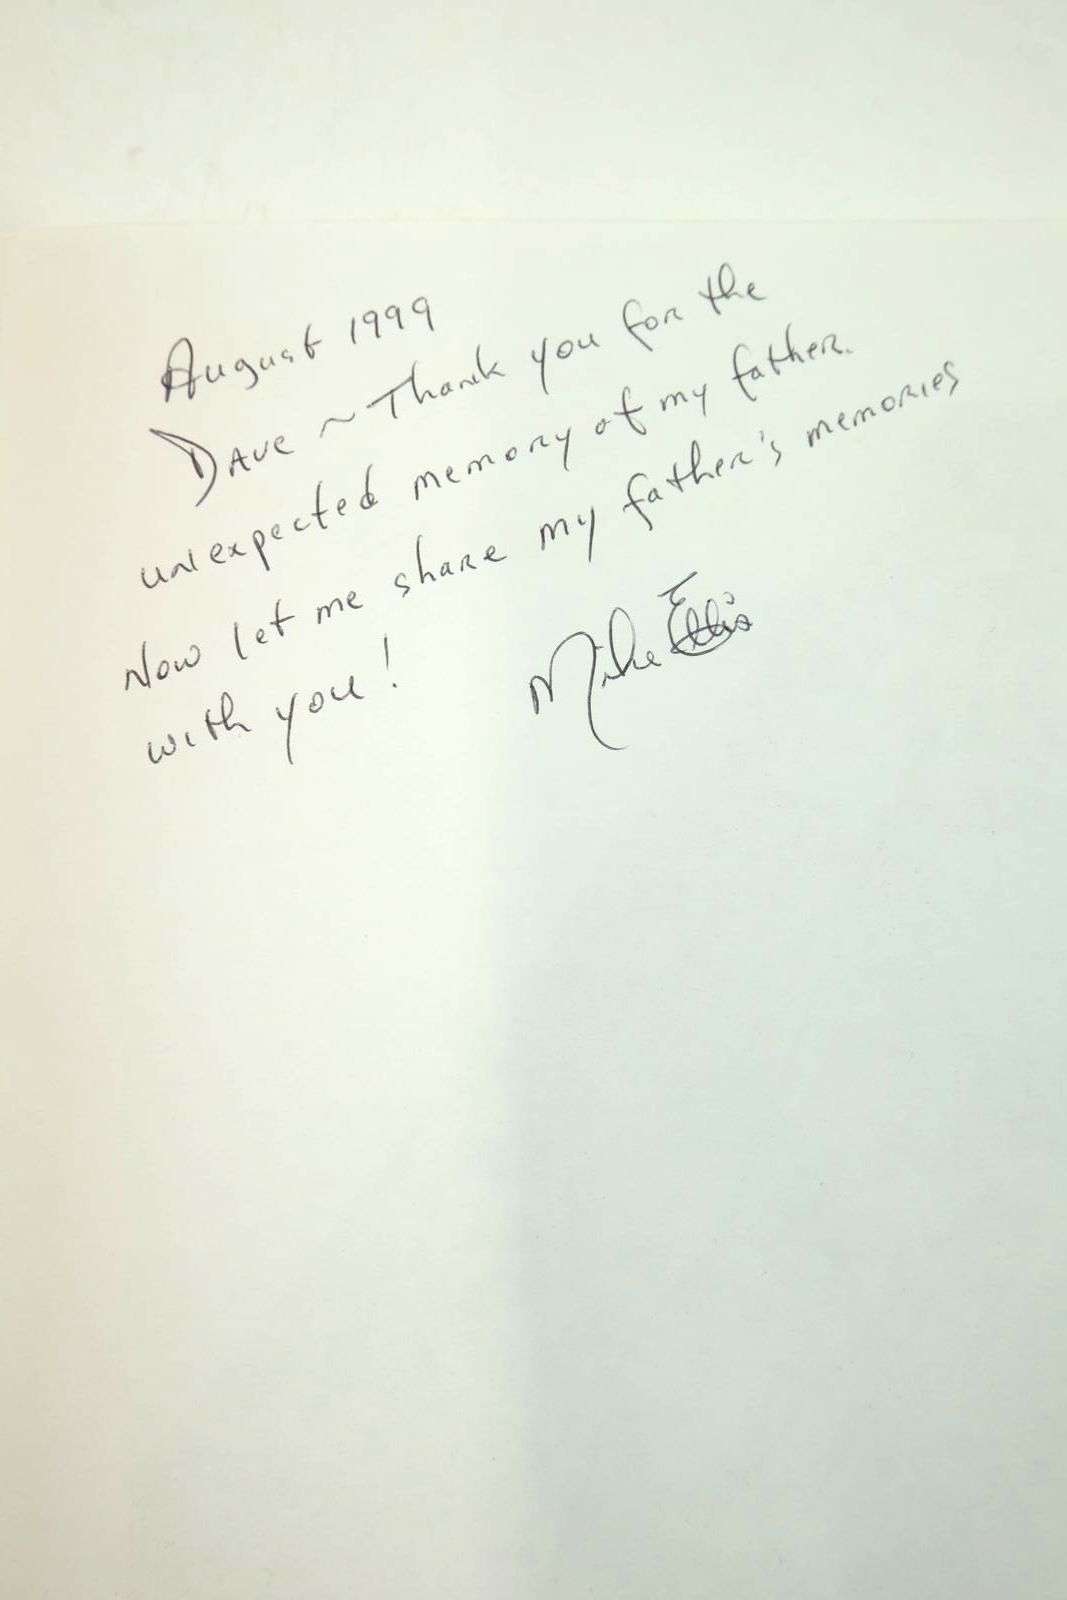 August 1999
Dave ~ Thank you for the
unexpected memory of my father.
Now let me share my father's memories
with you!
Mike Ellis